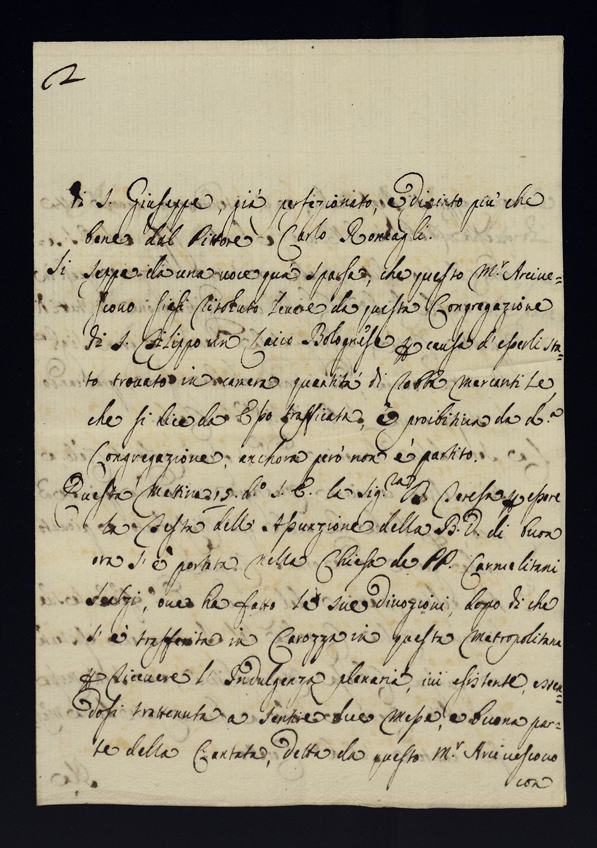 2
di S. Giuseppe, già perfezionato, e dipinto più che
bene dal Pittore Carlo Roncagli.
Si seppe da una voce quà sparsa, che questo Mr. Arcive=
scovo siasi risoluto levare da questa Congregazione
di S. Filippo un Laico Bolognese p causa d'esserli sta=
to trovato in camera quantità di robba mercantile,
che si dice da Esso trafficata, e proibitiva da d.a
Congregazione, anchora però non è partito.
Questa Mattina 15. d.o S. E. la Sig.ra Teresa p essere
la Festa dell'Assunzione della B. V. di buon
ora s'è portata nella Chiesa de PP. Carmelitani
Scalzi, ove ha fatto le sue Divozioni, dopo di che
s'è trasferita in Carozza in questa Metropolitana
p ricevere l'Indulgenza plenaria, ivi esistente, essen=
dosi trattenuta a sentire due Messe, e buona par=
te della Cantata, detta da questo Mr. Arcivescovo
con